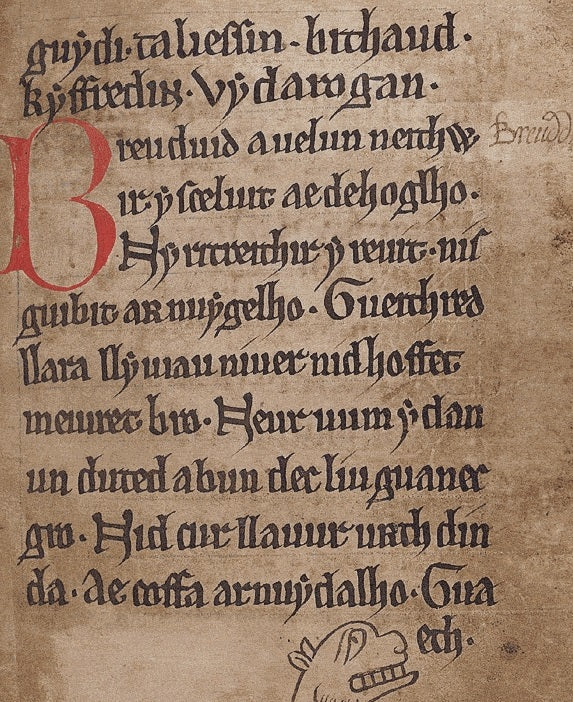 guẏdi. taliessin. bithaud.
kẏffredin. Vẏ darogan.
Breuduid auelun neithw
Breudd
ir ẏ sceluit aedehoglho.
Nẏ ritreithir ẏ reuit. nis
guibit ar nuẏgelho. Gueithred
llara llẏuiau niuer nid hoffet
meiuret bro. Neur uum ẏ dan
un duted abun dec liu guanec
gro. Nid cur llauur urth din
da. Ae coffa arnuẏ dalho. Gua
eth.